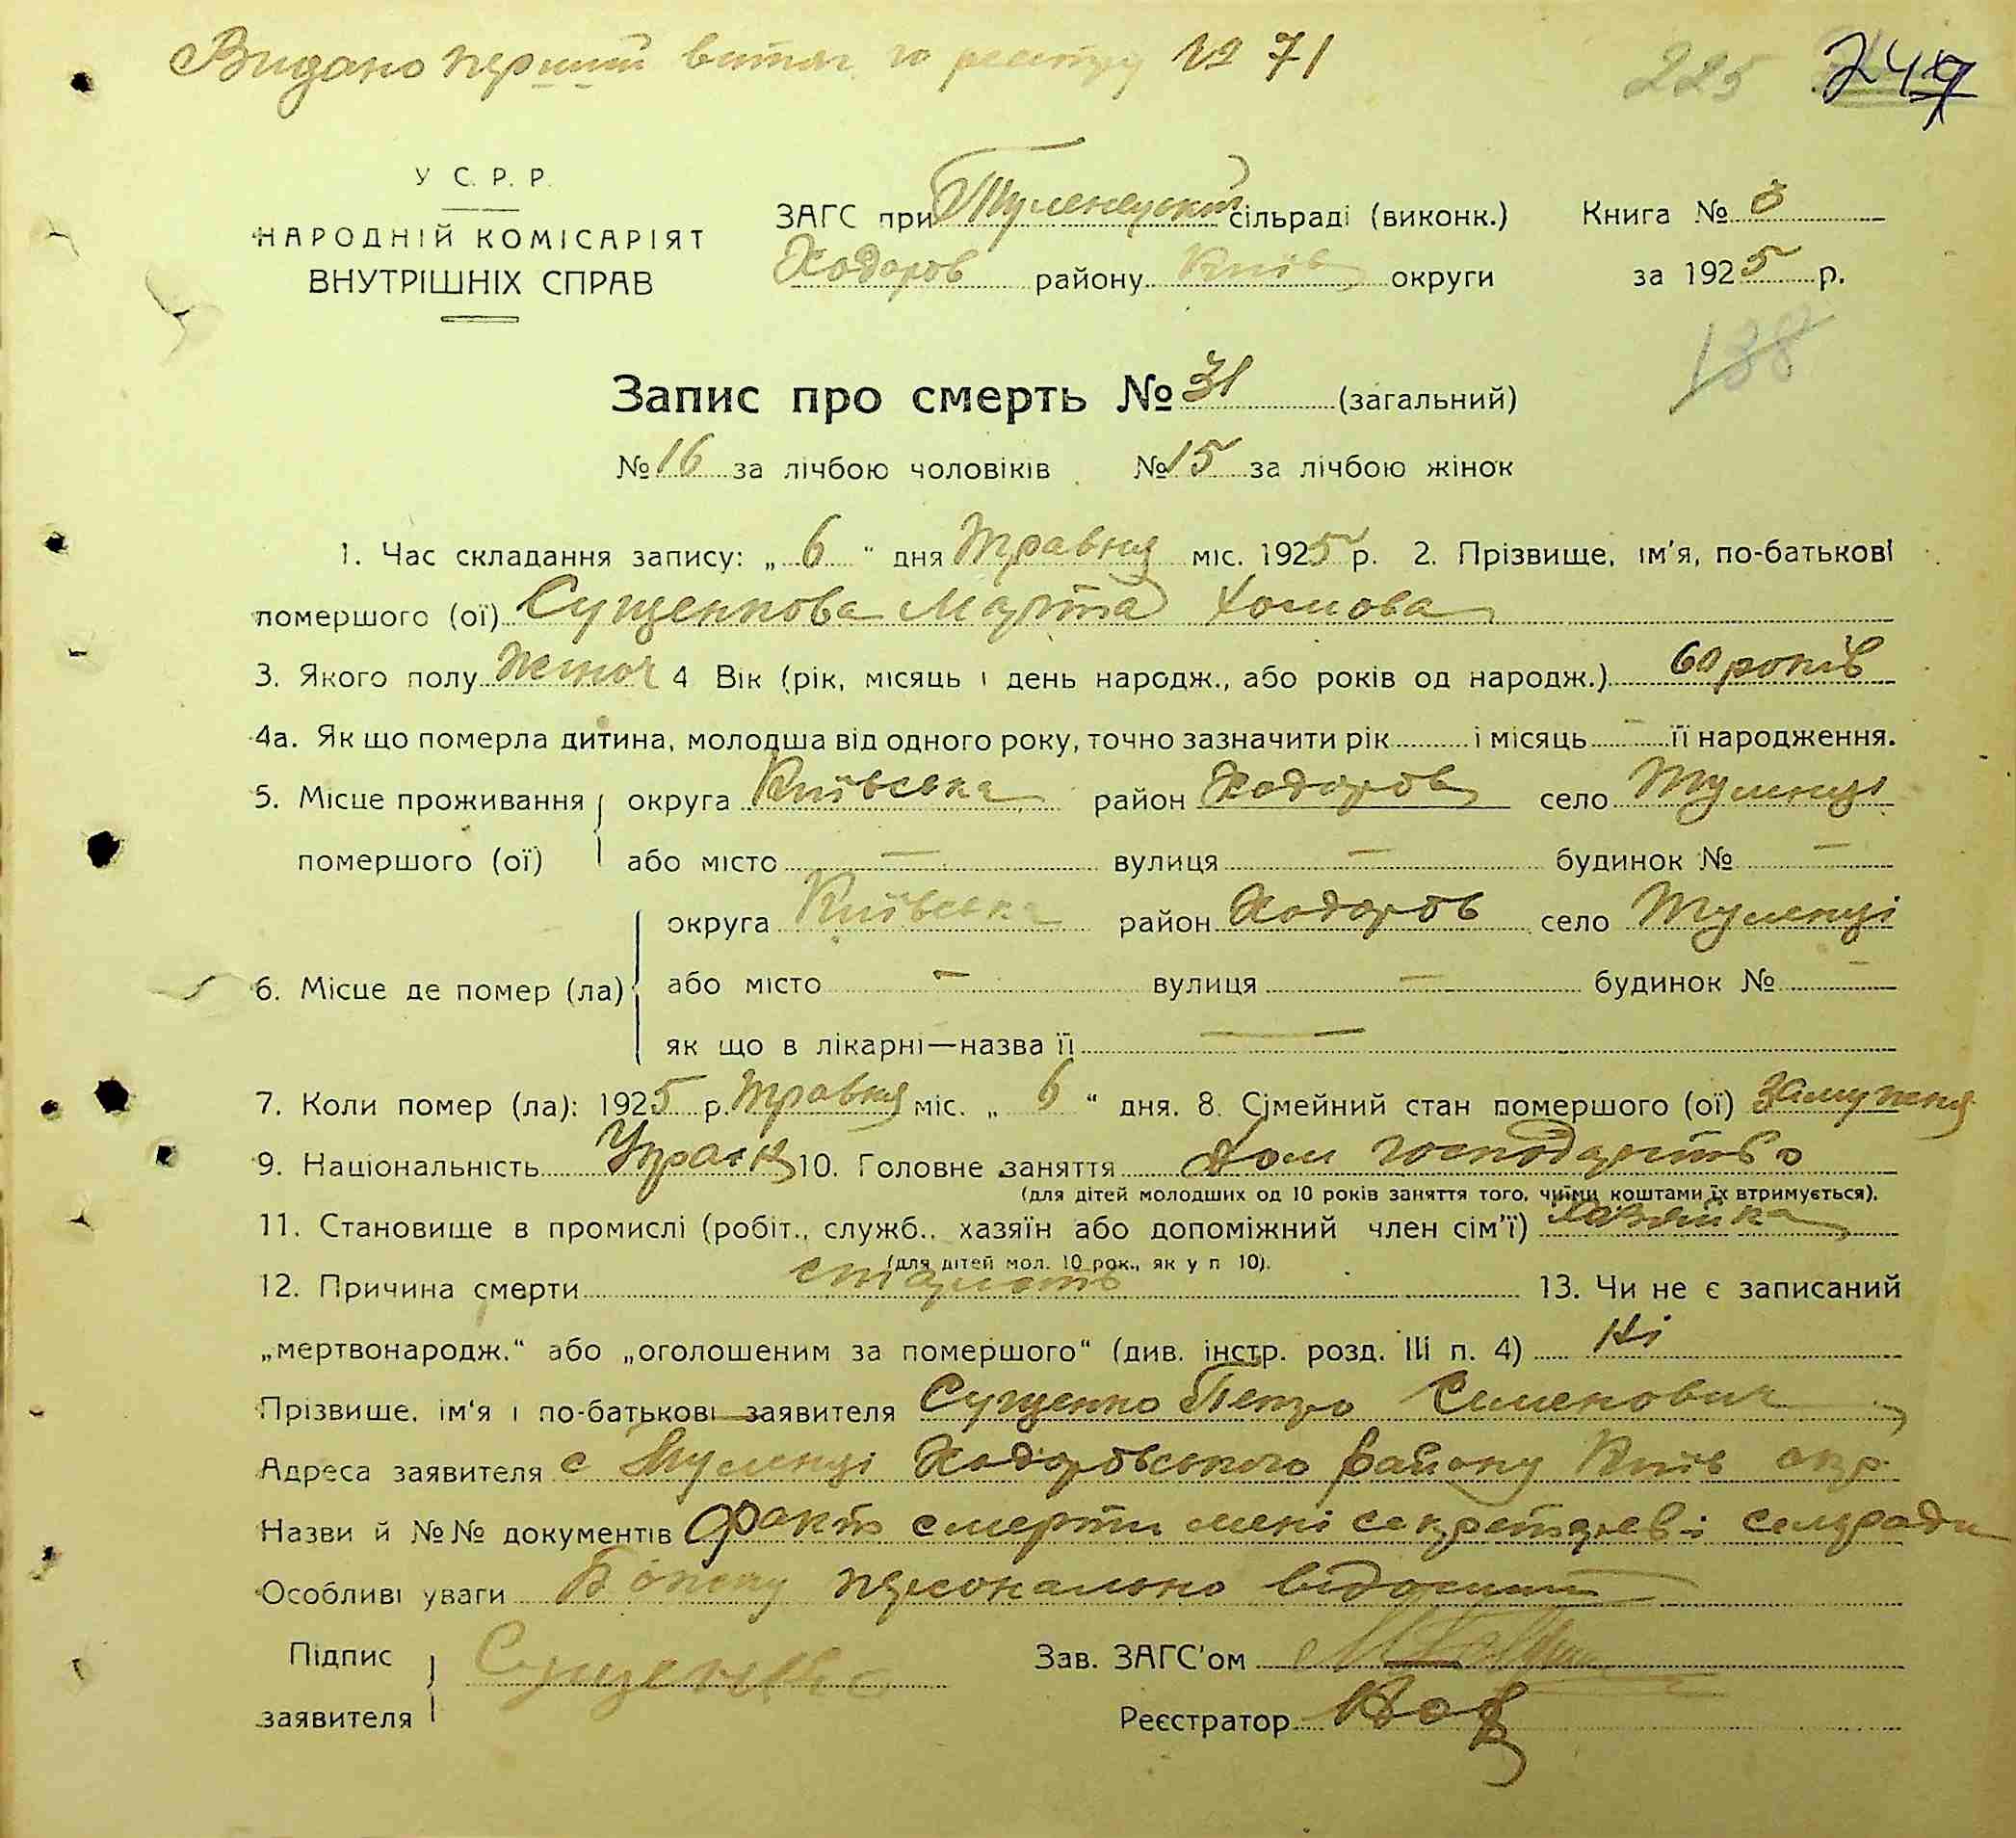 Видано перший витяг по реєстру № 71
225 247
У С. Р. Р.
НАРОДНІЙ КОМІСАРІЯТ
ВНУТРІШНІХ СПРАВ
ЗАГС при Тулинецький сільраді (виконк.) Книга №
Ходоров району Київ округи за 1925 р.
138
Запис про смерть № 31 (загальний)
№ 16 за лічбою чоловіків № 15 за лічбою жінок
1. Час складання запису: „ 6 “ дня Травня міс. 1925 р. 2. Прізвище, ім'я, по-батькові
помершого (ої) Сущенкова Марта Хомова
3. Якого полу жіноч 4 Вік (рік, місяць і день народж., або років од народж.) 60 років
4а. Як що померла дитина, молодша від одного року, точно зазначити рік і місяць — її народження.
5. Місце проживання помершого (ої) округа Київська район Ходоров село Тулинці
або місто — вулиця — будинок № —
6. Місце де помер (ла) округа Київська район Ходоров село Тулинці
або місто — вулиця — будинок № —
як що в лікарні—назва її —
7. Коли помер (ла): 1925 р. Травня міс. „ 6 “ дня. 8. Сімейний стан помершого (ої) замужня
9. Національність Україн 10. Головне заняття дом господарство
(для дітей молодших од 10 років заняття того, чиїми коштами їх втримується).
11. Становище в промислі (робіт., служб., хазяїн або допоміжний член сім'ї) хазяйка
(для дітей мол. 10 рок., як у п 10).
12. Причина смерти старість 13. Чи не є записаний
„мертвонародж.“ або „оголошеним за помершого“ (див. інстр. розд. III п. 4) Ні
Прізвище, ім'я і по-батькові заявителя Сущенко Петро Семенович
Адреса заявителя с Тулинці Ходоровського району Київ окр.
Назви й №№ документів Факт смерти мені секретареві сельради
Особливі уваги персонально відомий
Підпис заявителя Сущенко Зав. ЗАГС'ом
Реєстратор